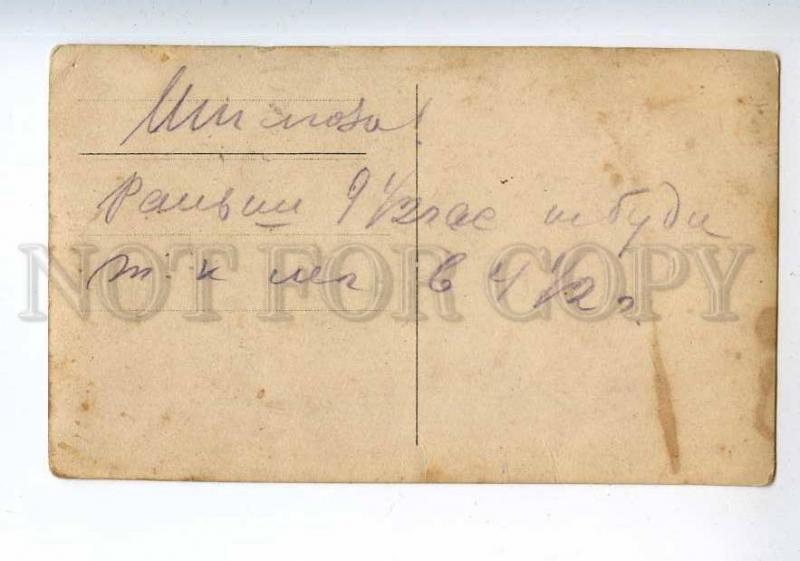 Раньши 9 1/2 час не буди
т. к. лег в 4 1/2 ч.
NOT FOR COPY